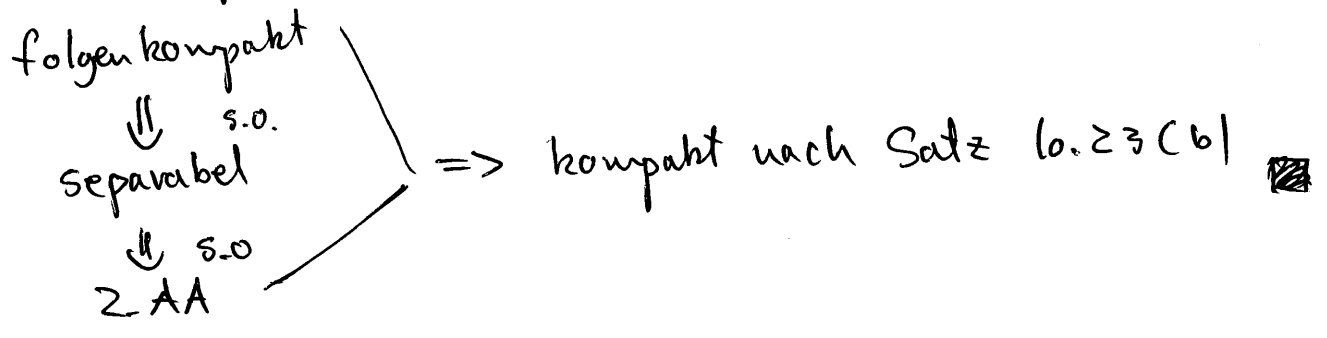 folgenkompakt
⇓ s.o.
separabel
⇓ s.o
2 AA
=> kompakt nach Satz 10.23(b)